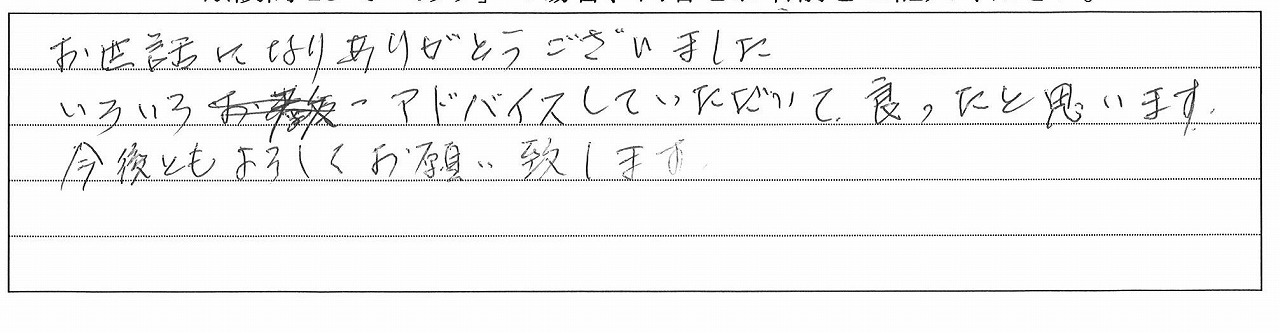 お世話になりありがとうございました
いろいろ アドバイスしていただいて、良ったと思います.
今後ともよろしくお願い致します.